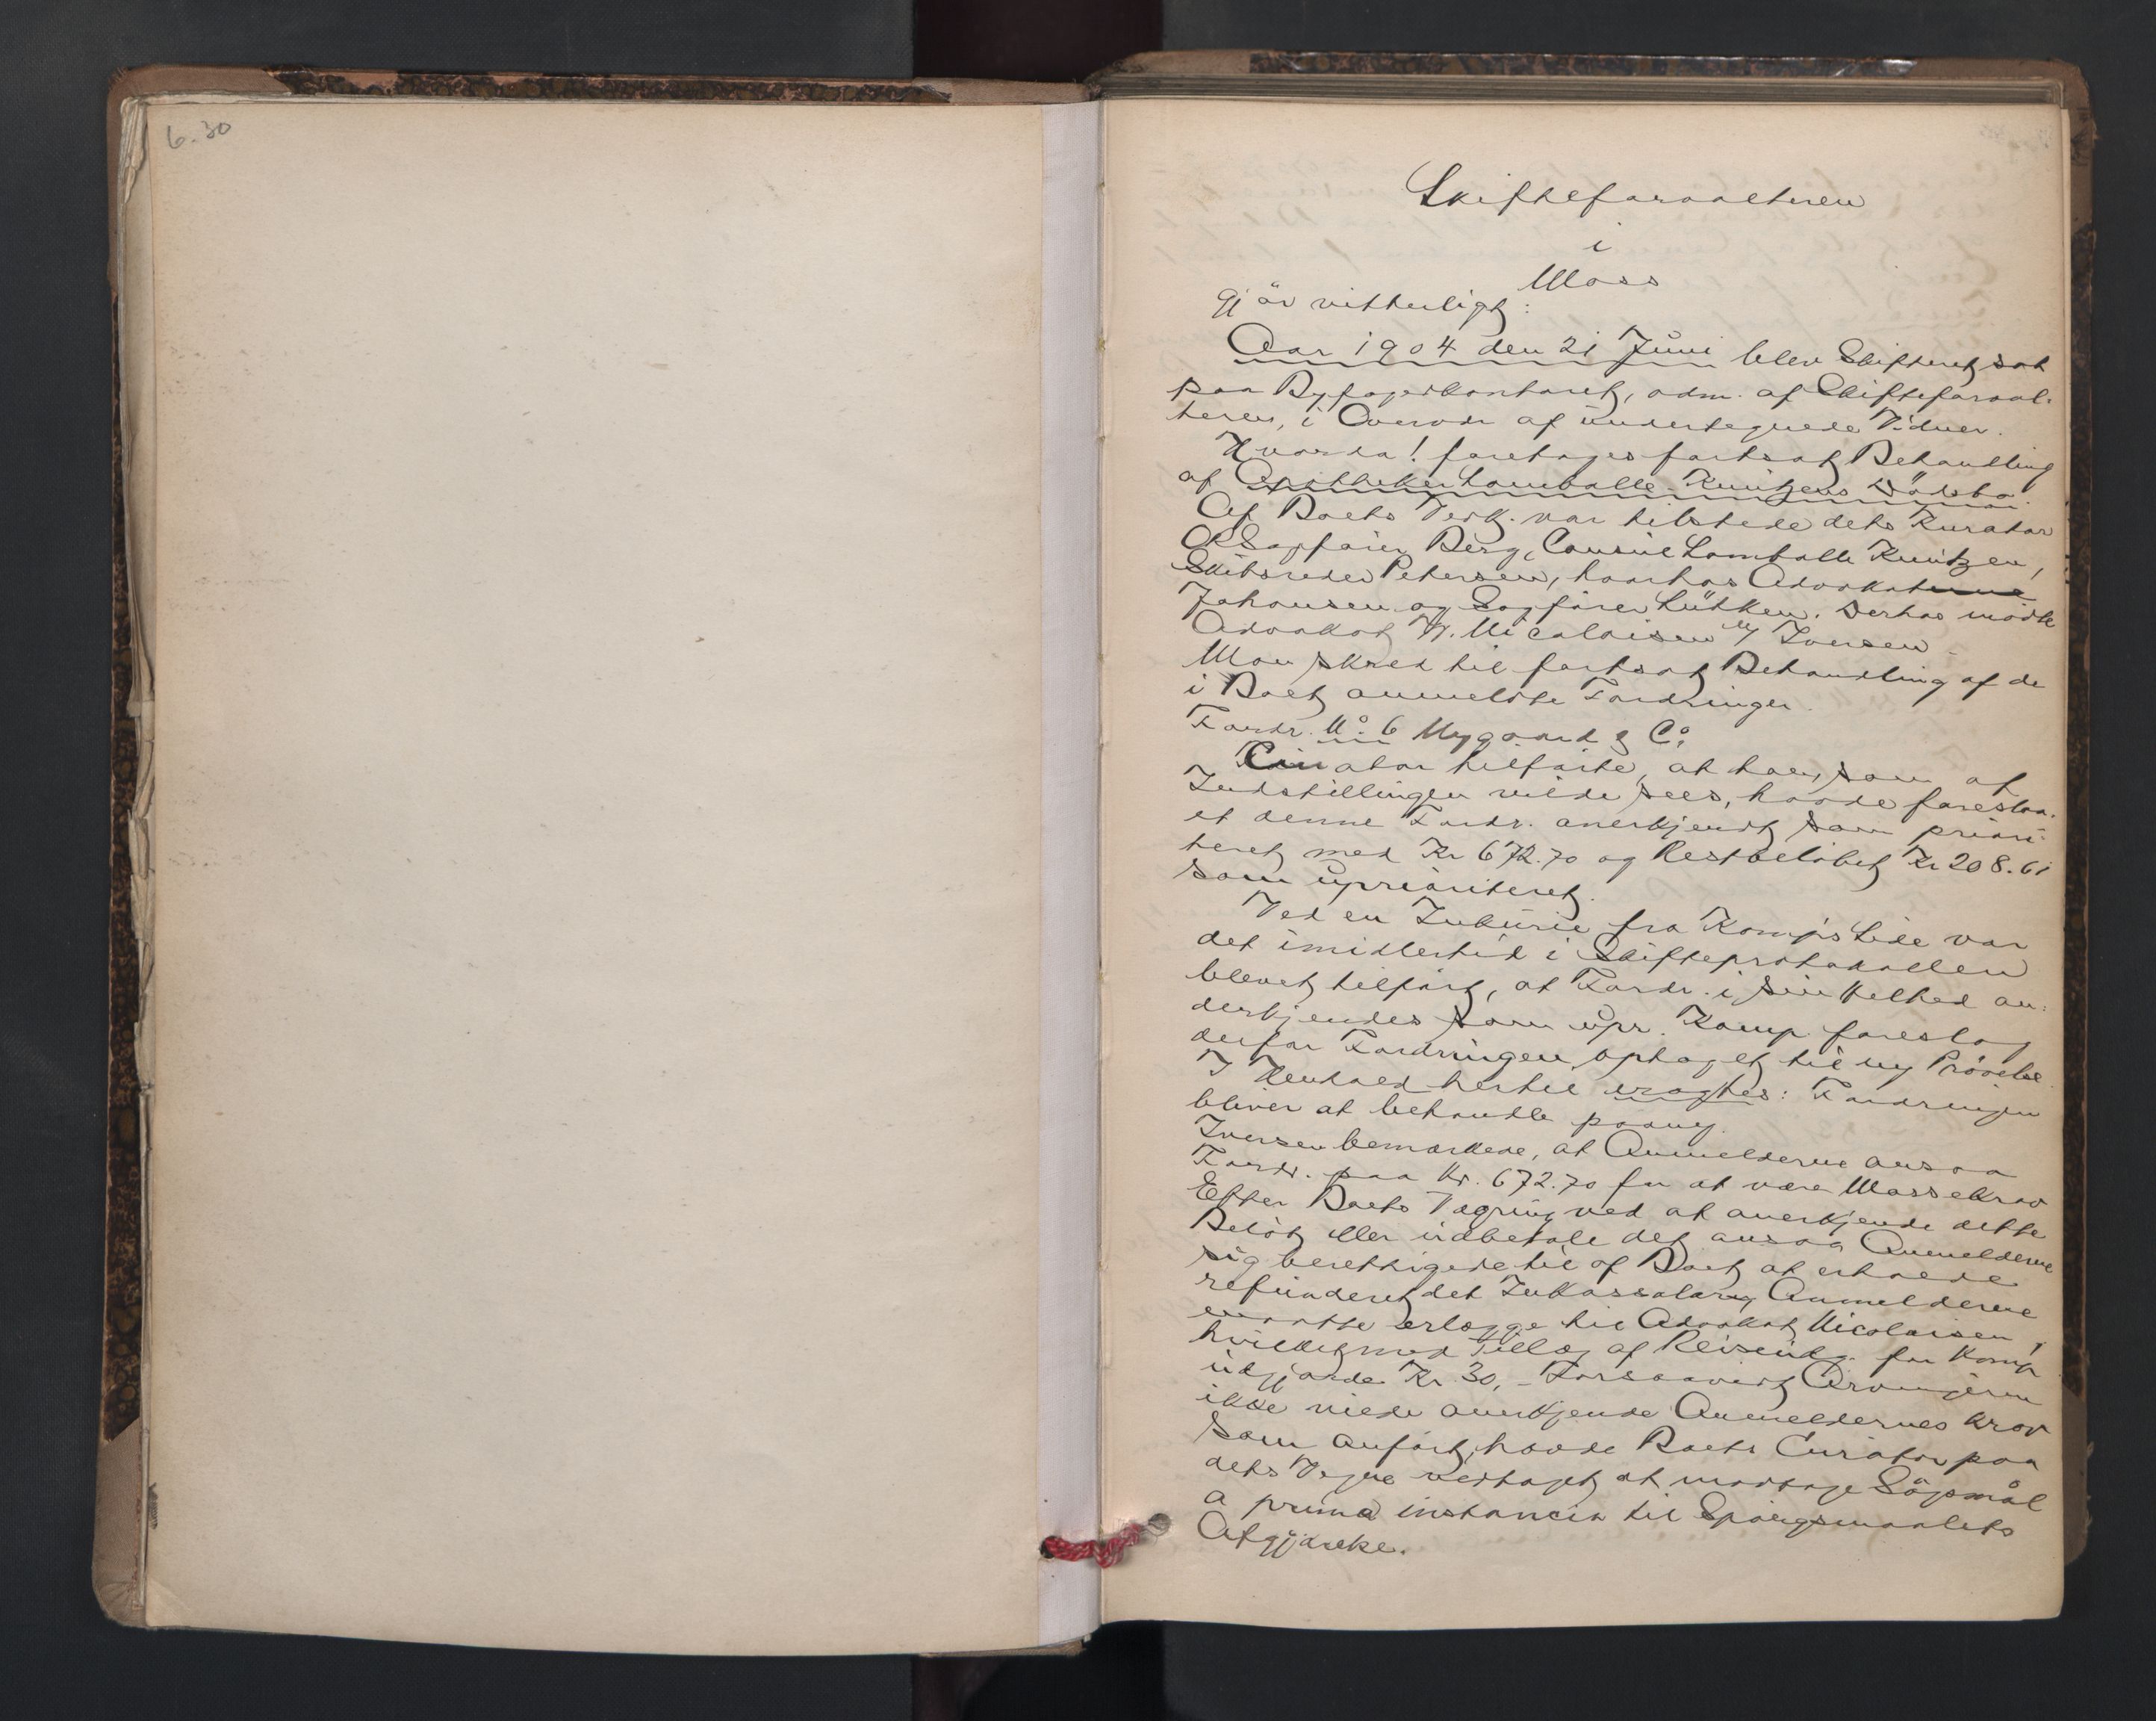 6.30
Skifteforvalteren
i
Moss
gjör vitterligt:
Aar 1904 den 21 Juni blev Skifteret sat
paa Byfogedkontoret, adm. af Skifteforval-
teren, i Overvær af undertegnede Vidner.
Hvorda! foretoges fortsat Behandling
af Apotheker Lamballe-Knutzens Dödsbo.
Af Boets Vedk. var tilstede dets Kurator
ORSagförer Berg, Consul Lamballe Knutzen,
Skibsreder Petersen, hvorhos Advokat
Johansen og Sagförer Lütken. Derhos mödte
Advokat W. Nicolaisen v/ Iversen
Man skred til fortsat Behandling af de
i Boet anmeldte Fordringer.
Fordr. No 6 Nygaard & Co.
Curator tilförte, at han, som af
Indstillingen vilde sees, havde foreslaa-
et denne Fordr. anerkjendt som priori-
teret med Kr 672.70 og Restbelöbet Kr 208.61
som uprioriteret.
Ved en Inkurie fra Komp's Side var
det imidlertid i Skifteprotokollen
blevet tilfört, at Fordr. i sin Helhed an-
derkjendes som upr. Komp. foreslog
derfor Fordringen optaget til ny Prövelse.
I Henhold hertil vragtes: Fordringen
bliver at behandle paany.
Iversen bemærkede, at Anmelderne ansaa
Fordr. paa Kr. 672.70 for at være Massekrav
Efter Boets Vægring ved at anerkjende dette
Belöb eller udbetale det ansaa Anmelderne
sig berettigede til af Boet at erholde
refunderet det Inkassosalær, Anmelderne
maatte erlægge til Advokat Nicolaisen,
hvilket med Tillæg af Reiseudg. for Komp.
udgjorde Kr. 30,- Forsaavidt Arvingerne
ikke vilde anerkjende Anmeldernes Krav
som anfört, havde Boets Curator paa
dets Vegne vedtaget at modtage Sögsmål
a prima instancia til Spörgsmaalets
Afgjörelse.